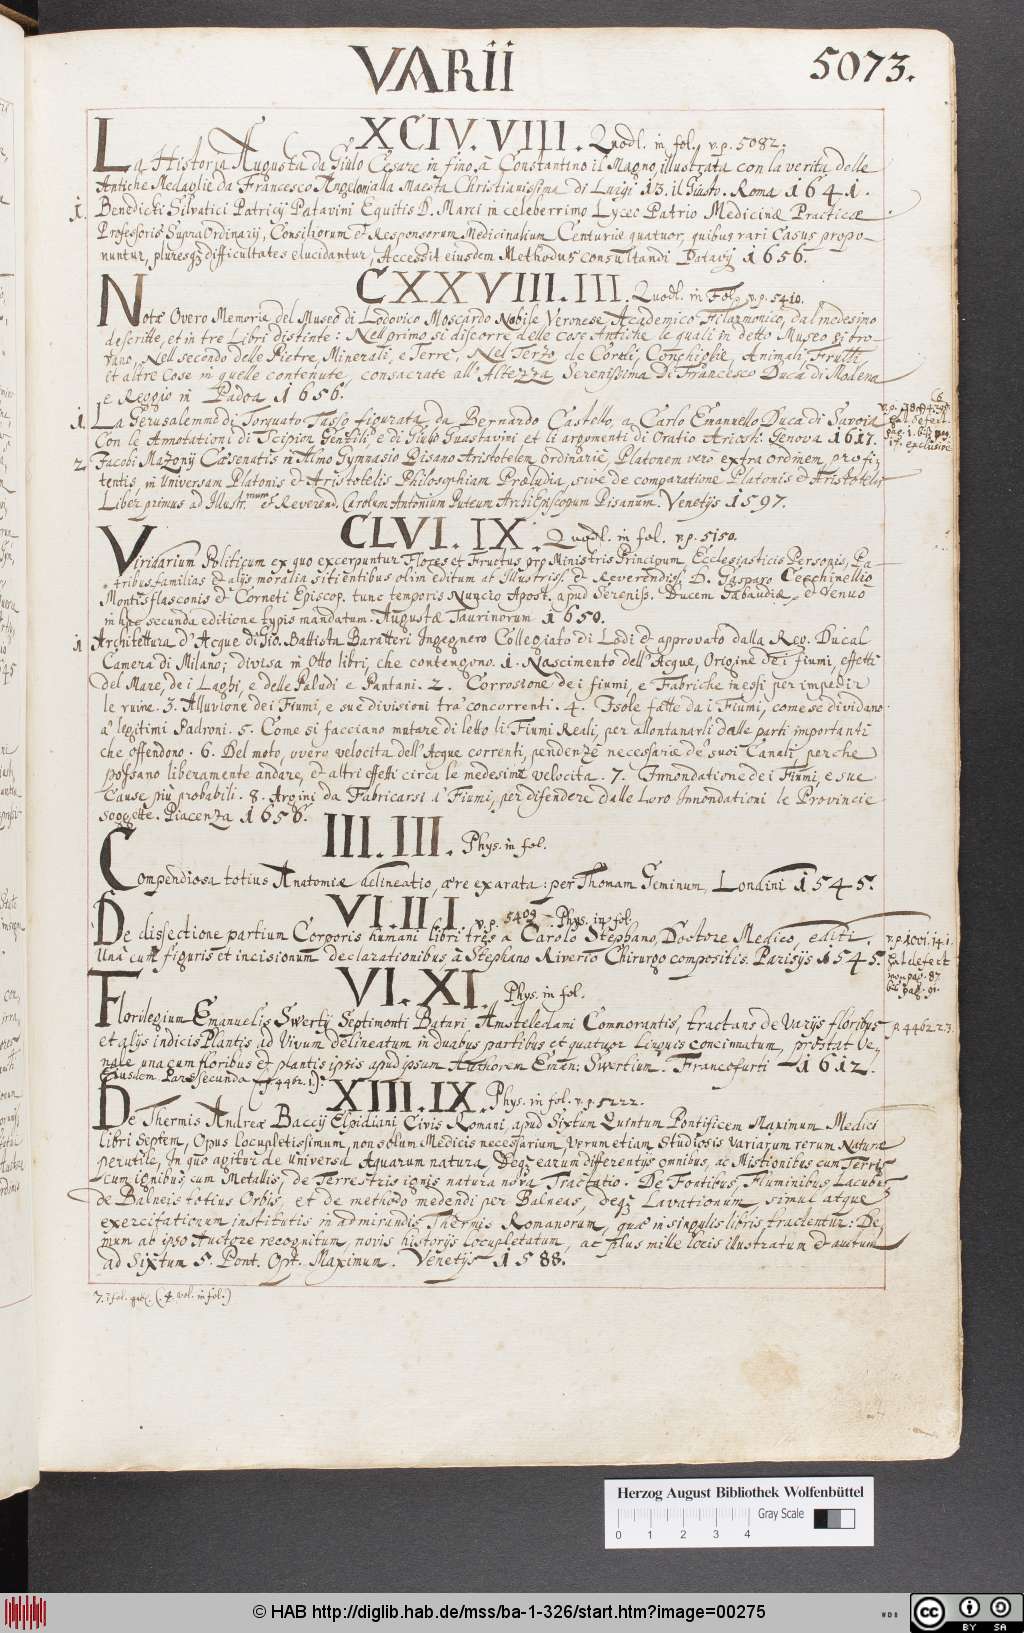 VARII
5073.
XCIV. VIII. Quodl. in fol. v.p. 5082.
La Historia Augusta da Giulo Cesare in fino, à Constantino il Magno, illustrata con la verita delle
Antiche Medaglie da Francesco Angeloni alla Maesta Christianissima di Luigi 13. il Giusto. Roma 1641.
1. Benedicti Silvatici Patricij Patavini Equitis D. Marci in celeberrimo Lyceo Patrio Medicinæ Practicæ
Professoris SupraOrdinarij, Consiliorum et Responsorum Medicinalium Centuriæ quatuor, quibus rari Casus propo-
nuntur, pluresq; difficultates elucidantur, Accessit eiusdem Methodus consultandi Patavij 1656.
CXXVIII. III. Quodl. in Fol. v.p. 5410.
Notæ Overo Memorie del Museo di Lodovico Moscardo Nobile Veronese, Academico Filarmonico, dal medesimo
descritte, et in tre Libri distinte: Nell primo si discorre delle cose Antiche le quali in detto Museo si tro-
vano, Nell secondo delle Pietre, Minerali, e Terre, Nel Terzo de Corali, Conchiglie, Animali, Frutti
et altre Cose in quelle contenute, consacrate all' Altezza Serenissima Di Francesco Duca di Modena
e Reggio in Padoa 1656.
1. La Gerusalemme di Torquato Tasso figurata da Bernardo Castello, a Carlo Emanuello Duca di Savoia
Con le Annotationi di Scipion Gentili e di Giulo Guastavini et li argomenti di Oratio Ariosti. Genova 1617.
2. Jacobi Mazonij Cæsenatis in Almo Gymnasio Pisano Aristotelem ordinariè, Platonem verò extra ordinem, profi-
tentis, in Universam Platonis et Aristotelis Philosophiam Præludia, sive de comparatione Platonis et Aristotelis
Liber primus ad Illustr.mum et Reverend. Carolum Antonium Puteum ArchiEpiscopum Pisanum. Venetijs 1597.
CLVI. IX. Quodl. in fol. v.p. 5150.
Viridarium Politicum ex quo excerpuntur Flores et Fructus pro Ministris Principum, Ecclesiasticis Personis, Pa-
tribusfamilias et alijs moralia sitientibus olim editum at Illustriss. et Reverendiss. D. Gasparo Cecchinellio
Montisflasconis et Corneti Episcop. tunc temporis Nuncio Apost. apud Sereniss. Ducem Sabaudiæ, et denuo
in hac secunda editione typis mandatum. Augustæ Taurinorum 1650.
1 Architettura d'Acque di Gio. Battista Baratteri Ingegnero Collegiato di Lodi et approvato dalla Reg. Ducal
Camera di Milano; divisa in Otto libri, che contengono. 1. Nascimento dell'Acque, Origine de i fiumi, effetti
del Mare, de i Laghi, e delle Paludi e Pantani. 2. Corrosione de i fiumi, e Fabriche in essi per impedir
le ruine. 3. Alluvione de i Fiumi, e sue divisioni tra concorrenti. 4. Isole fatte da i Fiumi, come se dividano
a' legitimi Padroni. 5. Come si facciano mutare di letto li Fiumi Reali, per allontanarli dalle parti importanti
che offendono. 6. Del moto, overo velocita dell'Acque correnti, pendenze necessarie de' suoi Canali, perche
possano liberamente andare, et altri effetti circa le medesime velocita. 7. Innondatione de i Fiumi, e sue
Cause più probabili. 8. Argini da Fabricarsi a' Fiumi, per difendere dalle Loro Innondationi le Provincie
soggette. Piacenza 1656.
III. III. Phys. in fol.
Compendiosa totius Anatomiæ delineatio, ære exarata: per Thomam Geminum, Londini 1545.
VI. II I. v.p. 5409 Phys. in fol.
De dissectione partium Corporis humani libri tres a Carolo Stephano, Doctore Medico, editi.
Una cum figuris et incisionum declarationibus à Stephano Riverio Chirurgo compositis. Parisijs 1545.
VI. XI. Phys. in fol.
Florilegium Emanuelis Swertij Septimonti Batavi, Amsteledami Commorantis, tractans de Varijs floribus
et alijs indicis Plantis, ad Vivum delineatum in duabus partibus et quatuor Linguis concinnatum, prostat Ve-
nale una cum floribus et plantis ipsis apud ipsum Authorem Eman: Swertium. Francofurti 1612.
Eiusdem Pars secunda (p. 4462. 1.)
p. 4462. 2. 3.
XIII. IX. Phys. in fol. v.p. 5222.
De Thermis Andreæ Baccij Elpidiani Civis Romani, apud Sixtum Quintum Pontificem Maximum Medici
libri Septem, Opus locupletissimum, non solum Medicis necessarium, Verum etiam Studiosis variarum rerum Naturæ
perutile, In quo agitur de Universa Aquarum natura, Deq; earum differentijs omnibus, ac Mistionibus cum Terris
cum ignibus, cum Metallis, de Terrestris ignis natura nova Tractatio. De Fontibus, Fluminibus, Lacubus
de Balneis totius Orbis, et de methodo medendi per Balneas, deq; Lavationum simul atque
exercitationum institutis in admirandis Thermis Romanorum, quæ in singulis libris tractentur: De-
mum ab ipso Auctore recognitum, novis historijs locupletatum, ac plus mille locis illustratum et auctum
ad Sixtum 5. Pont. Opt. Maximum. Venetijs 1588.
Herzog August Bibliothek Wolfenbüttel
0 1 2 3 4 Gray Scale
© HAB http://diglib.hab.de/mss/ba-1-326/start.htm?image=00275
cc BY SA